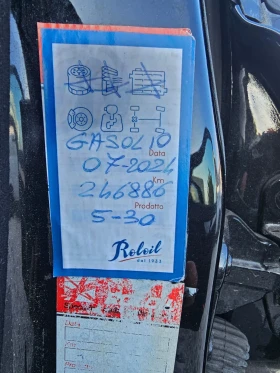 GASOLIO
Data
07-2024
Km
246886
Prodotto
5-30
Roloil
dal 1923
Data